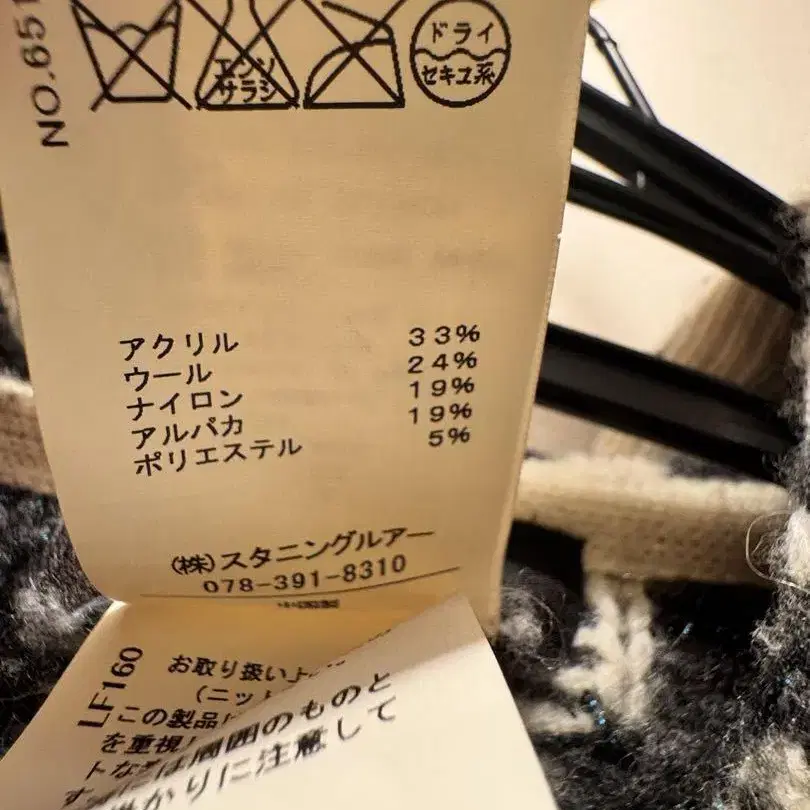 NO.651
エンソ
サラシ
ドライ
セキユ系
アクリル 33%
ウール 24%
ナイロン 19%
アルパカ 19%
ポリエステル 5%
(株)スタニングルアー
078-391-8310
LF160
お取り扱い上
(ニット
この製品は
を重視し
トな
周囲のものと
かりに注意して